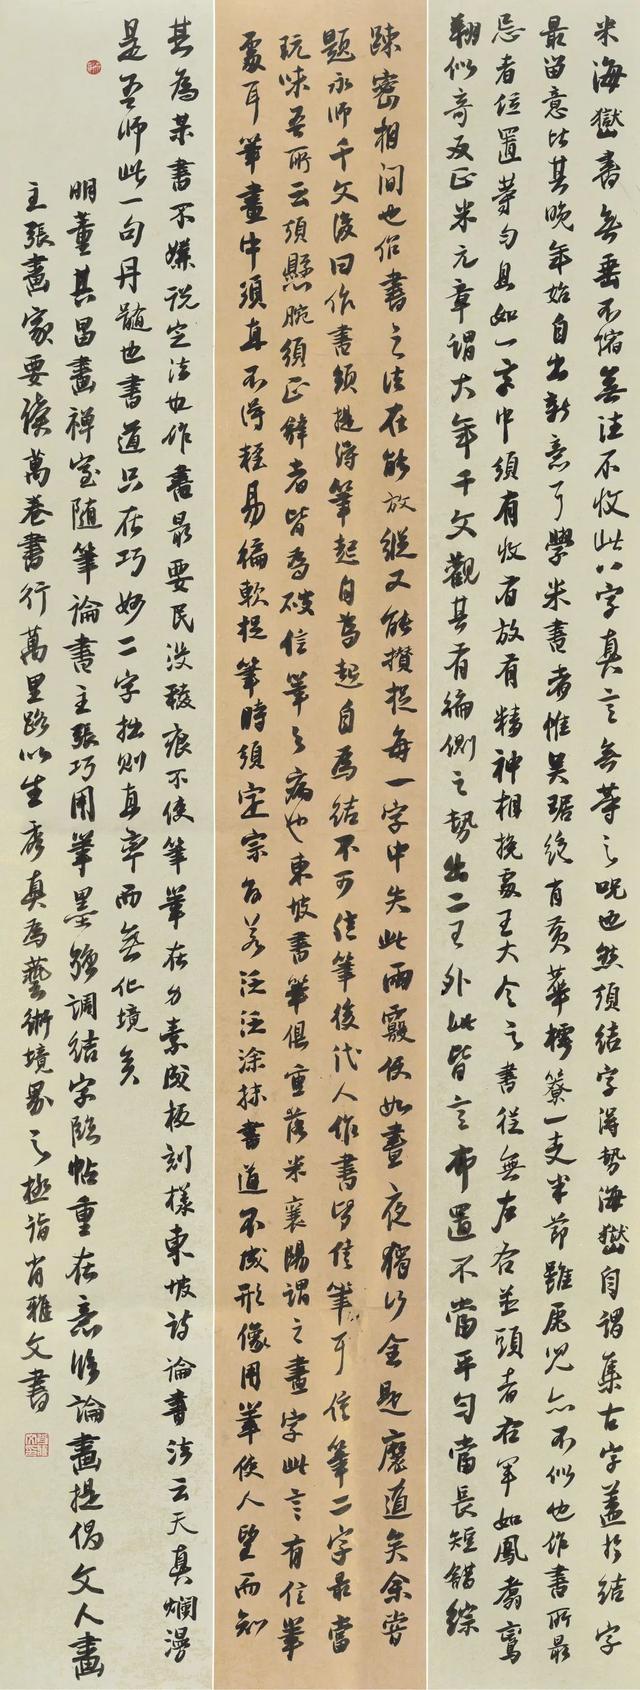 米海嶽書無垂不縮無往不收此八字真言無等之呪也然須結字得勢海嶽自謂集古字蓋於結字
最留意比其晚年始自出新意耳學米書者惟吳琚絕肖黃華樗寮一支半節雖虎兒亦不似也作書所最
忌者位置等勻且如一字中須有收有放有精神相挽處王大令之書從無左右並頭者右軍如鳳翥鸞
翔似奇反正米元章謂大年千文觀其有偏側之勢出二王外此皆言布置不當平勻當長短錯綜
疎密相間也作書之法在能放縱又能攢捉每一字中失此兩竅便如晝夜獨行全是魔道矣余嘗
題永師千文後曰作書須提得筆起自為起自為結不可信筆後代人作書皆信筆耳信筆二字最當
玩味吾所云須懸腕須正鋒者皆為破信筆之病也東坡書筆俱重落米襄陽謂之畫字此言有信筆
處耳筆畫中須直不得輕易偏軟捉筆時須定宗旨若泛泛塗抹書道不成形像用筆使人望而知
其為某書不嫌說定法也作書最要泯沒稜痕不使筆筆在
素成板刻樣東坡詩論書法云天真爛漫
是吾師此一句丹髓也書道只在巧妙二字拙則直率而無化境矣
明董其昌畫禪室隨筆論書主張巧用筆墨強調結字臨帖重在意臨論畫提倡文人畫
主張畫家要讀萬卷書行萬里路以生秀真為藝術境界之極詣肖雅文書